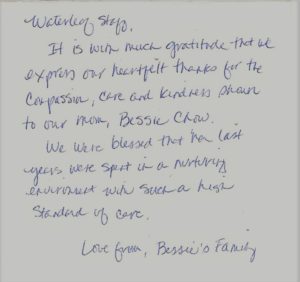 Waterleaf Staff,
It is with much gratitude that we
express our heartfelt thanks for the
compassion, care and kindness shown
to our mom, Bessie Chow.
We were blessed that her last
years were spent in a nurturing
environment with such a high
standard of care.
Love from, Bessie's Family